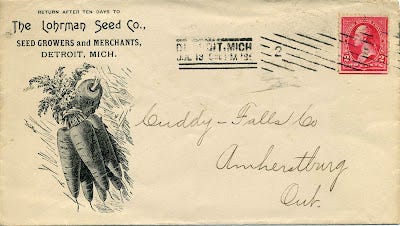 RETURN AFTER TEN DAYS TO
The Lohrman Seed Co.,
SEED GROWERS and MERCHANTS,
DETROIT, MICH.
DETROIT, MICH
JUL 19
2
2 2
Cuddy - Falls Co
Amherstburg
Ont.